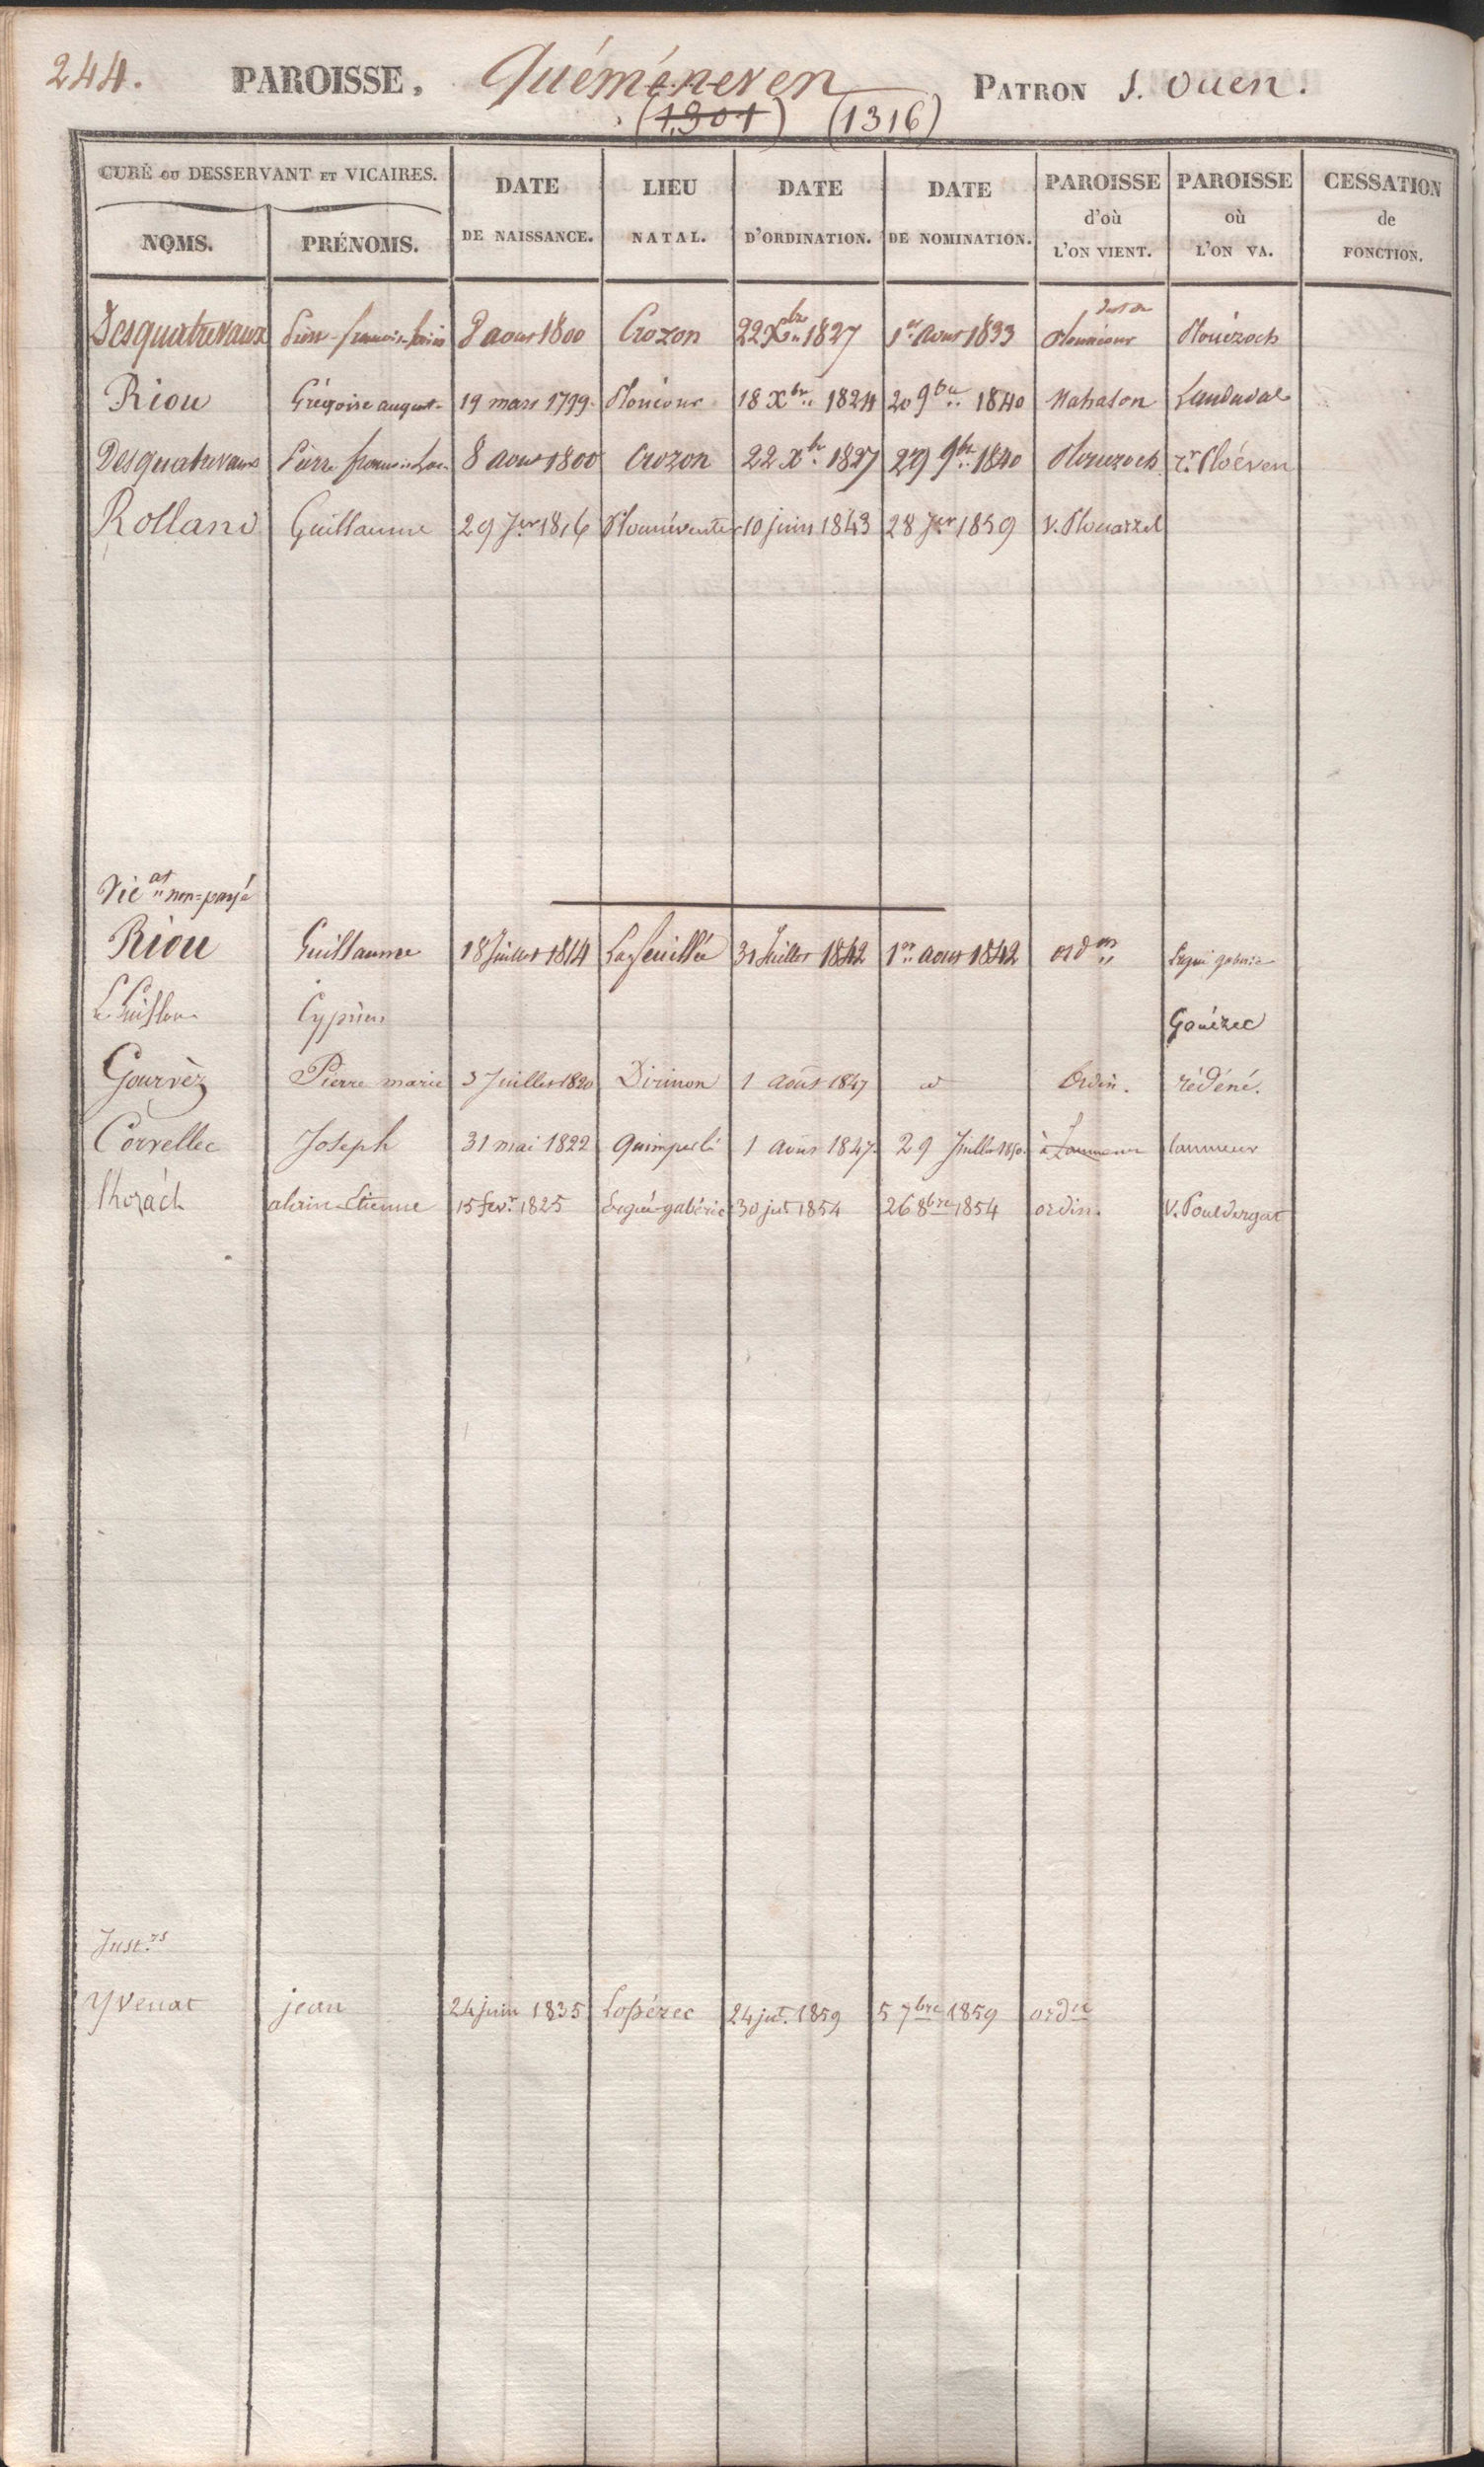 244. PAROISSE. Quéménéven PATRON S. Ouen.
(1,301) (1316)
CURÉ OU DESSERVANT ET VICAIRES.
NOMS. PRÉNOMS. DATE DE NAISSANCE. LIEU NATAL. DATE D'ORDINATION. DATE DE NOMINATION. PAROISSE d'où L'ON VIENT. PAROISSE où L'ON VA. CESSATION de FONCTION.
Desquatrevaux Pierre-françois-louis 8 aout 1800 Crozon 22 Xbre 1827 1er Aout 1833 Plouézoch
Riou Grégoire august- 19 mars 1799. 18 Xbre 1824 20 9bre 1840 Mahalon Landudal
Desquatrevaux Pierre françois 8 aout 1800 Crozon 22 Xbre 1827 29 9bre 1840 Plouezoch rr. Ploéven
Rolland Guillaume 29 Jer 1816 Plounéventer 10 juin 1843 28 Jer 1859 V. Plouarzel
Vicat non=payé
Riou Guillaume 18 Juillet 1814 La feuillée 31 Juillet 1842 1er aout 1842 ordon Ergué gabéric
Cyprien Gouézec
Gourvèz Pierre marie 3 Juillet 1820 Dirinon 1 août 1847 id Ordin. rédéné.
Corvellec Joseph 31 mai 1822 Quimperlé 1 août 1847. 29 Juillet 1850. à Lanmeur lanmeur
Lhozach alain-Etienne 15 fevr 1825 Ergué-gabéric 30 jut 1854 26 8bre 1854 ordin. V. Pouldergat
Inst.rs
Yvenat jean 24 juin 1835 Lopérec 24 jut. 1859 5 7bre 1859 ordn